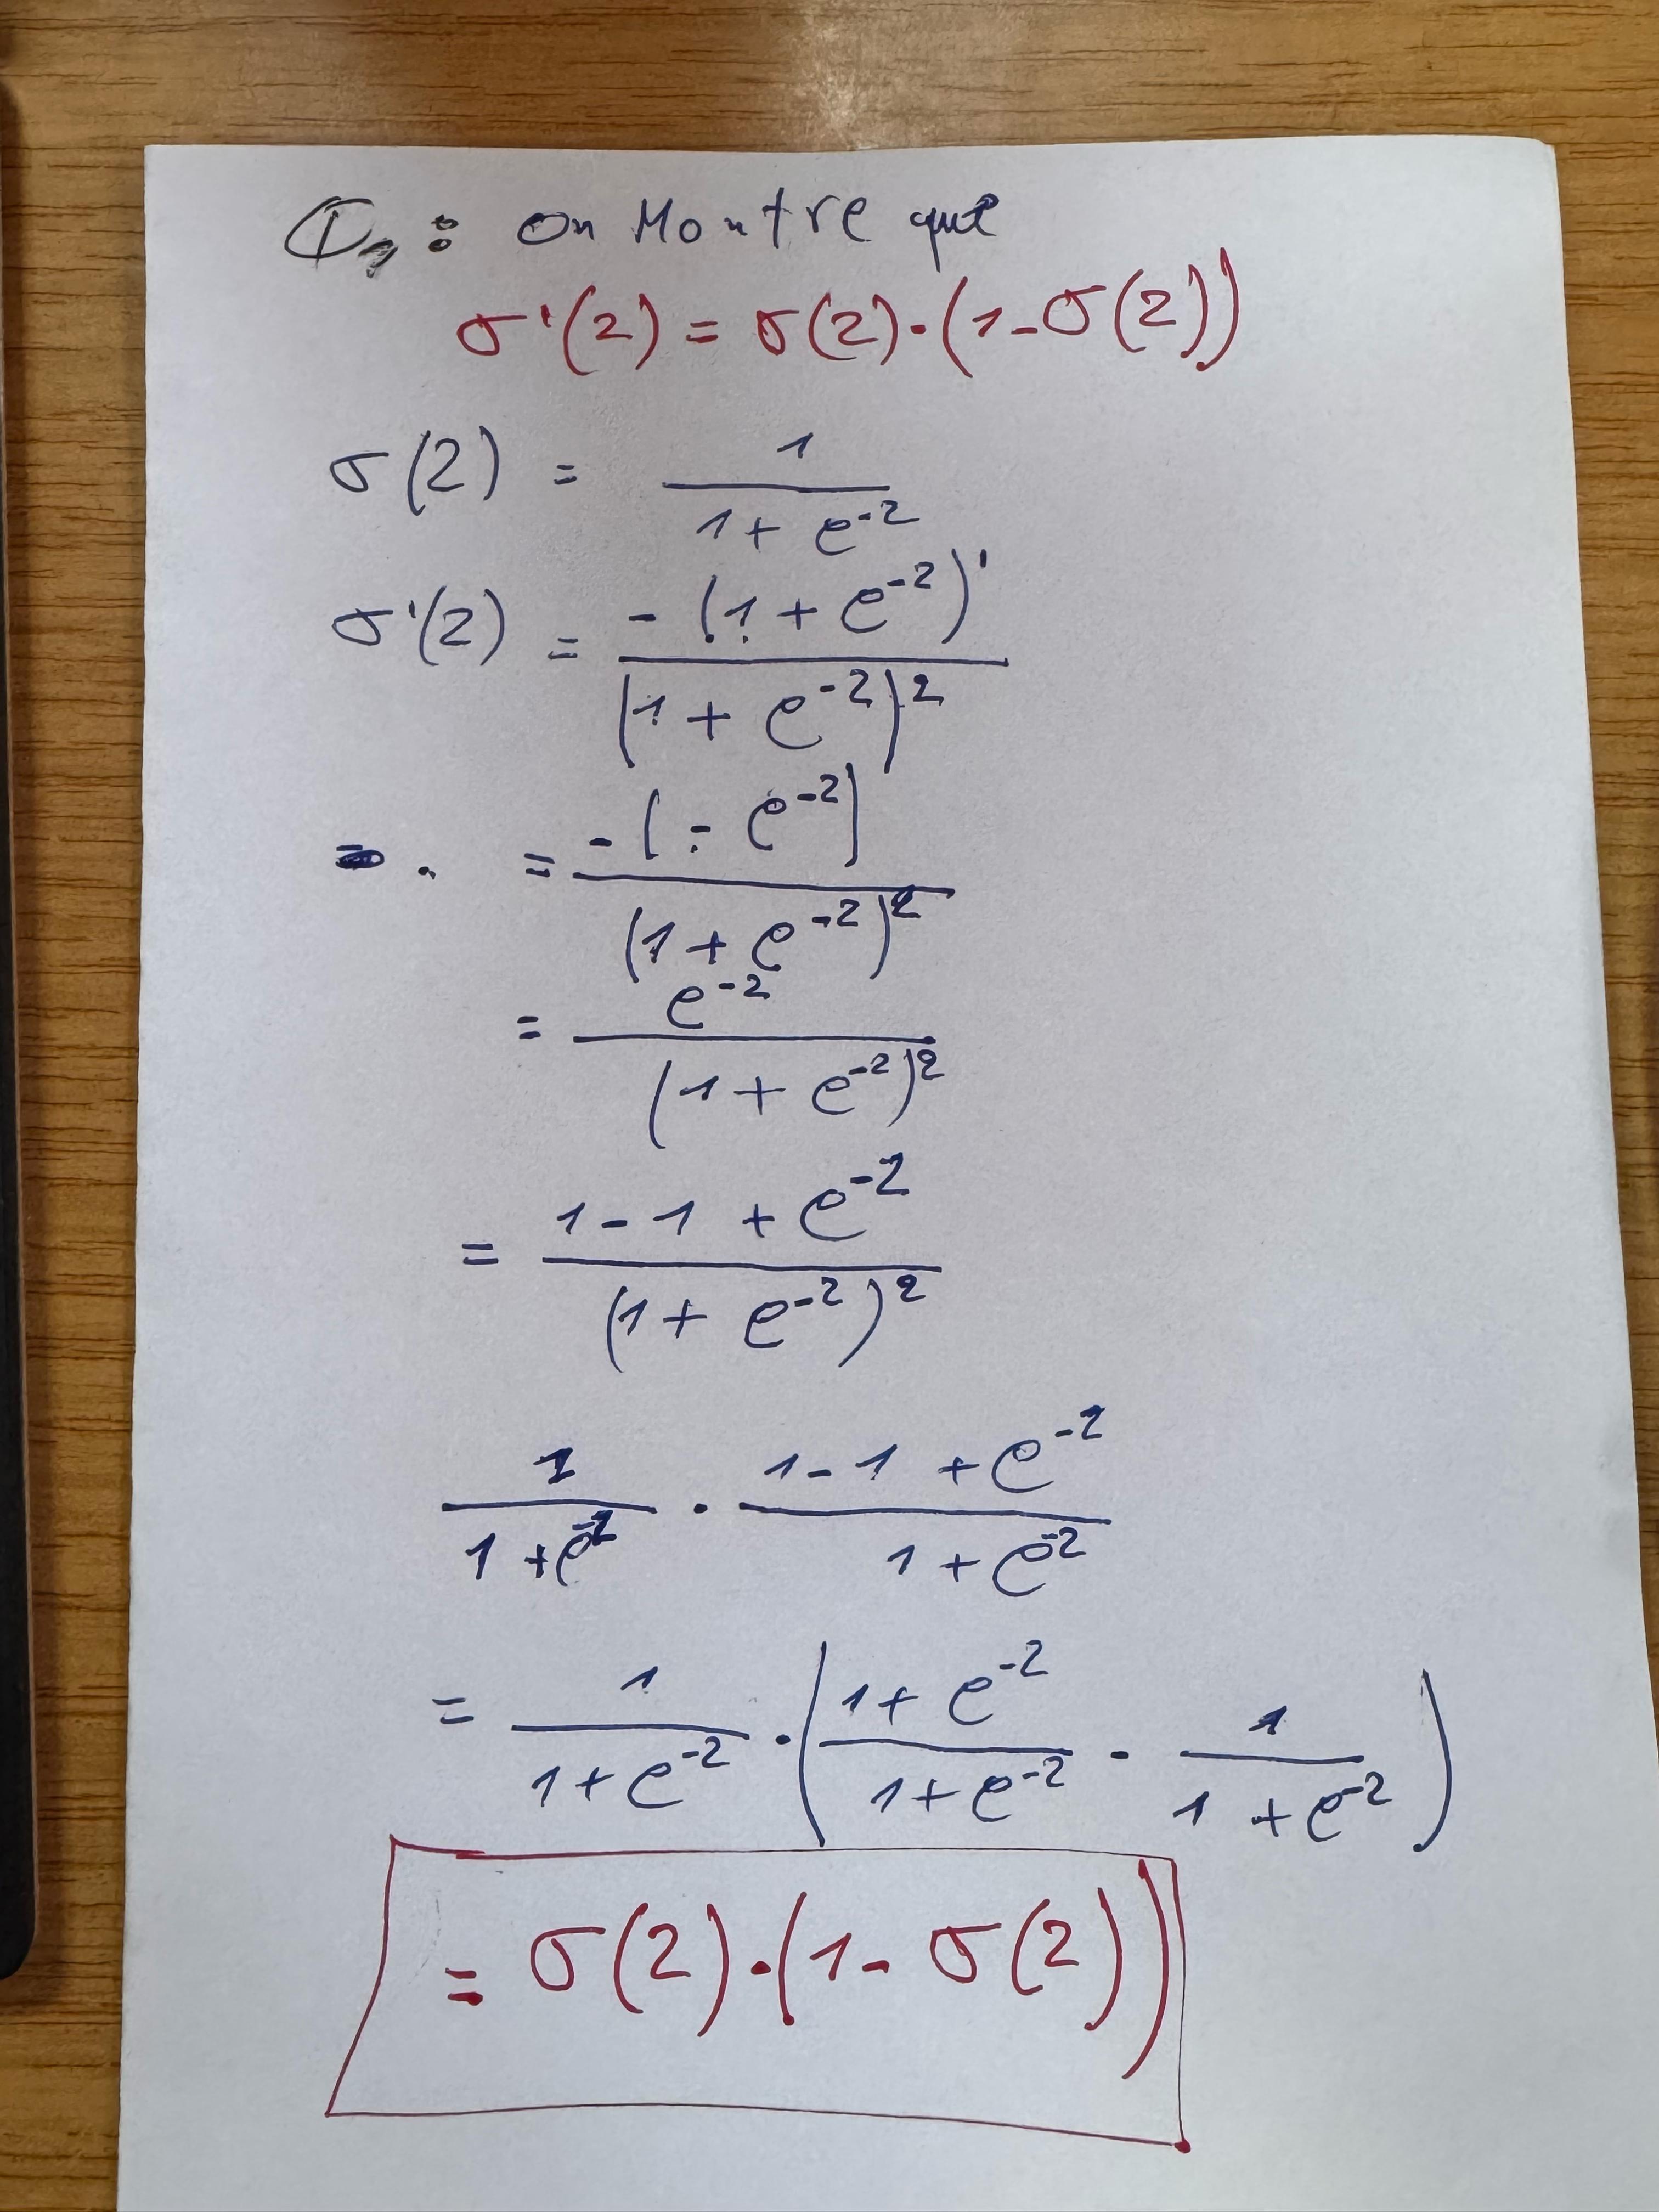 Q1 : on Montre que
σ'(2) = σ(2)·(1-σ(2))
σ(2) = 1 / (1 + e^-2)
σ'(2) = -(1 + e^-2)' / (1 + e^-2)^2
= -(-e^-2) / (1 + e^-2)^2
= e^-2 / (1 + e^-2)^2
= (1 - 1 + e^-2) / (1 + e^-2)^2
1 / (1 + e^-2) · (1 - 1 + e^-2) / (1 + e^-2)
= 1 / (1 + e^-2) · ((1 + e^-2) / (1 + e^-2) - 1 / (1 + e^-2))
= σ(2)·(1 - σ(2))